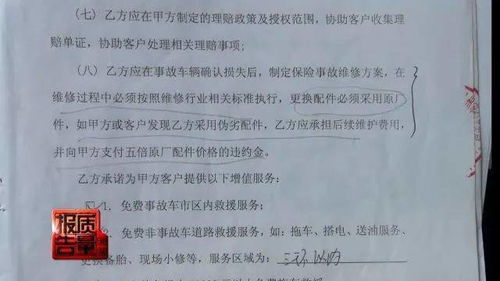 (七) 乙方应在甲方制定的理赔政策及授权范围，协助客户收集理
赔单证，协助客户处理相关理赔事项；
(八) 乙方应在事故车辆确认损失后，制定保险事故维修方案，在
维修过程中必须按照维修行业相关标准执行，更换配件必须采用原厂
件，如甲方或客户发现乙方采用伪劣配件，乙方应承担后续维护费用，
并向甲方支付五倍原厂配件价格的违约金。
乙方承诺为甲方客户提供以下增值服务：
1. 免费事故车市区内救援服务；
免费非事故车道路救援服务，如：拖车、搭电、送油服务、
更换备胎、现场小修等，服务区域为：三环以内
质量
报告